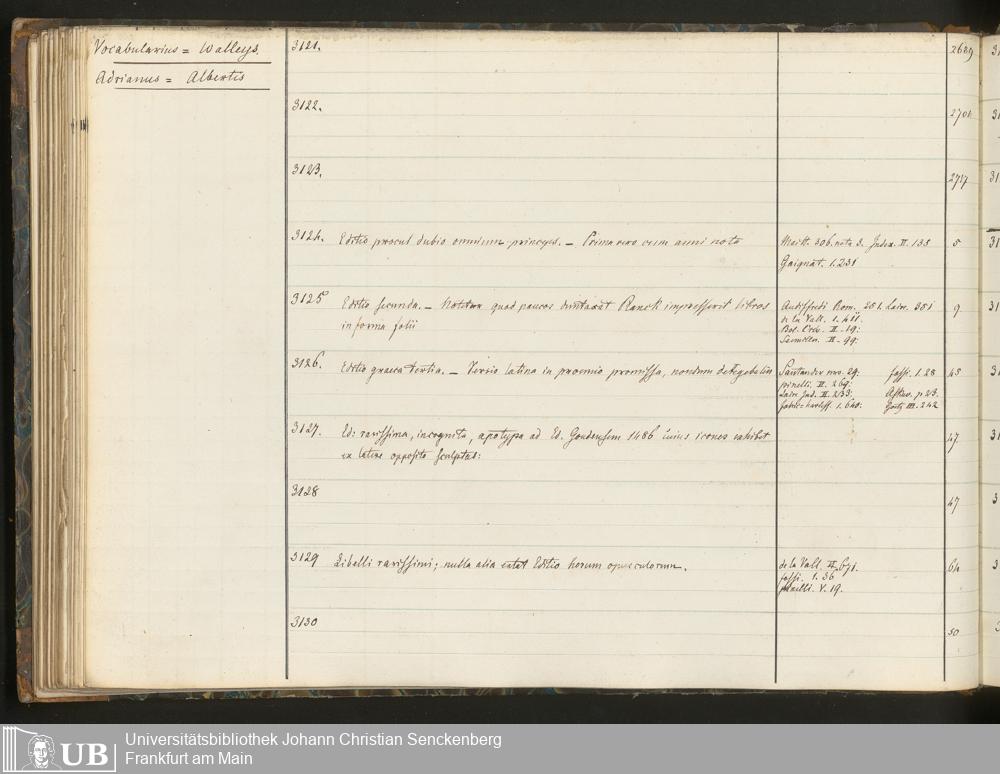 Vocabularius = Walleys.
Adrianus = Albertis
3121.
2689
3122.
2704
3123.
2717
3124. Editio procul dubio omnium princeps. – Prima vero cum anni nota
Mait. 306. nota 3. Index. II. 135
Gaignat. 1. 231
5
3125 Editio secunda. – Notetur quod paucos duntaxat Planck impresserit libros
in forma folii
Audiffredi Rom. 251. Laire. 251
de la Vall. 1.
II - 19:
II - 99:
9
3126. Editio graeca tertia. – Versio latina in prooemio promissa, nondum detegebatur
Santander nro. 29. fossi. 1. 28
pinelli. II. 269:
Laire Ind. II. 233: p. 23.
1. 640: Goetz III. 242
45
3127. Ed: rarissima, incognita, apotypa ad Ed. Goudensem 1486 cuius icones exhibet
ex latere opposito sculptas:
47
3128
47
3129 Libelli rarissimi; nulla alia extat Editio horum opusculorum.
de la Vall. II. 671.
fossi. 1. 36
pinelli. V. 19.
64
3130
50
UB
Universitätsbibliothek Johann Christian Senckenberg
Frankfurt am Main